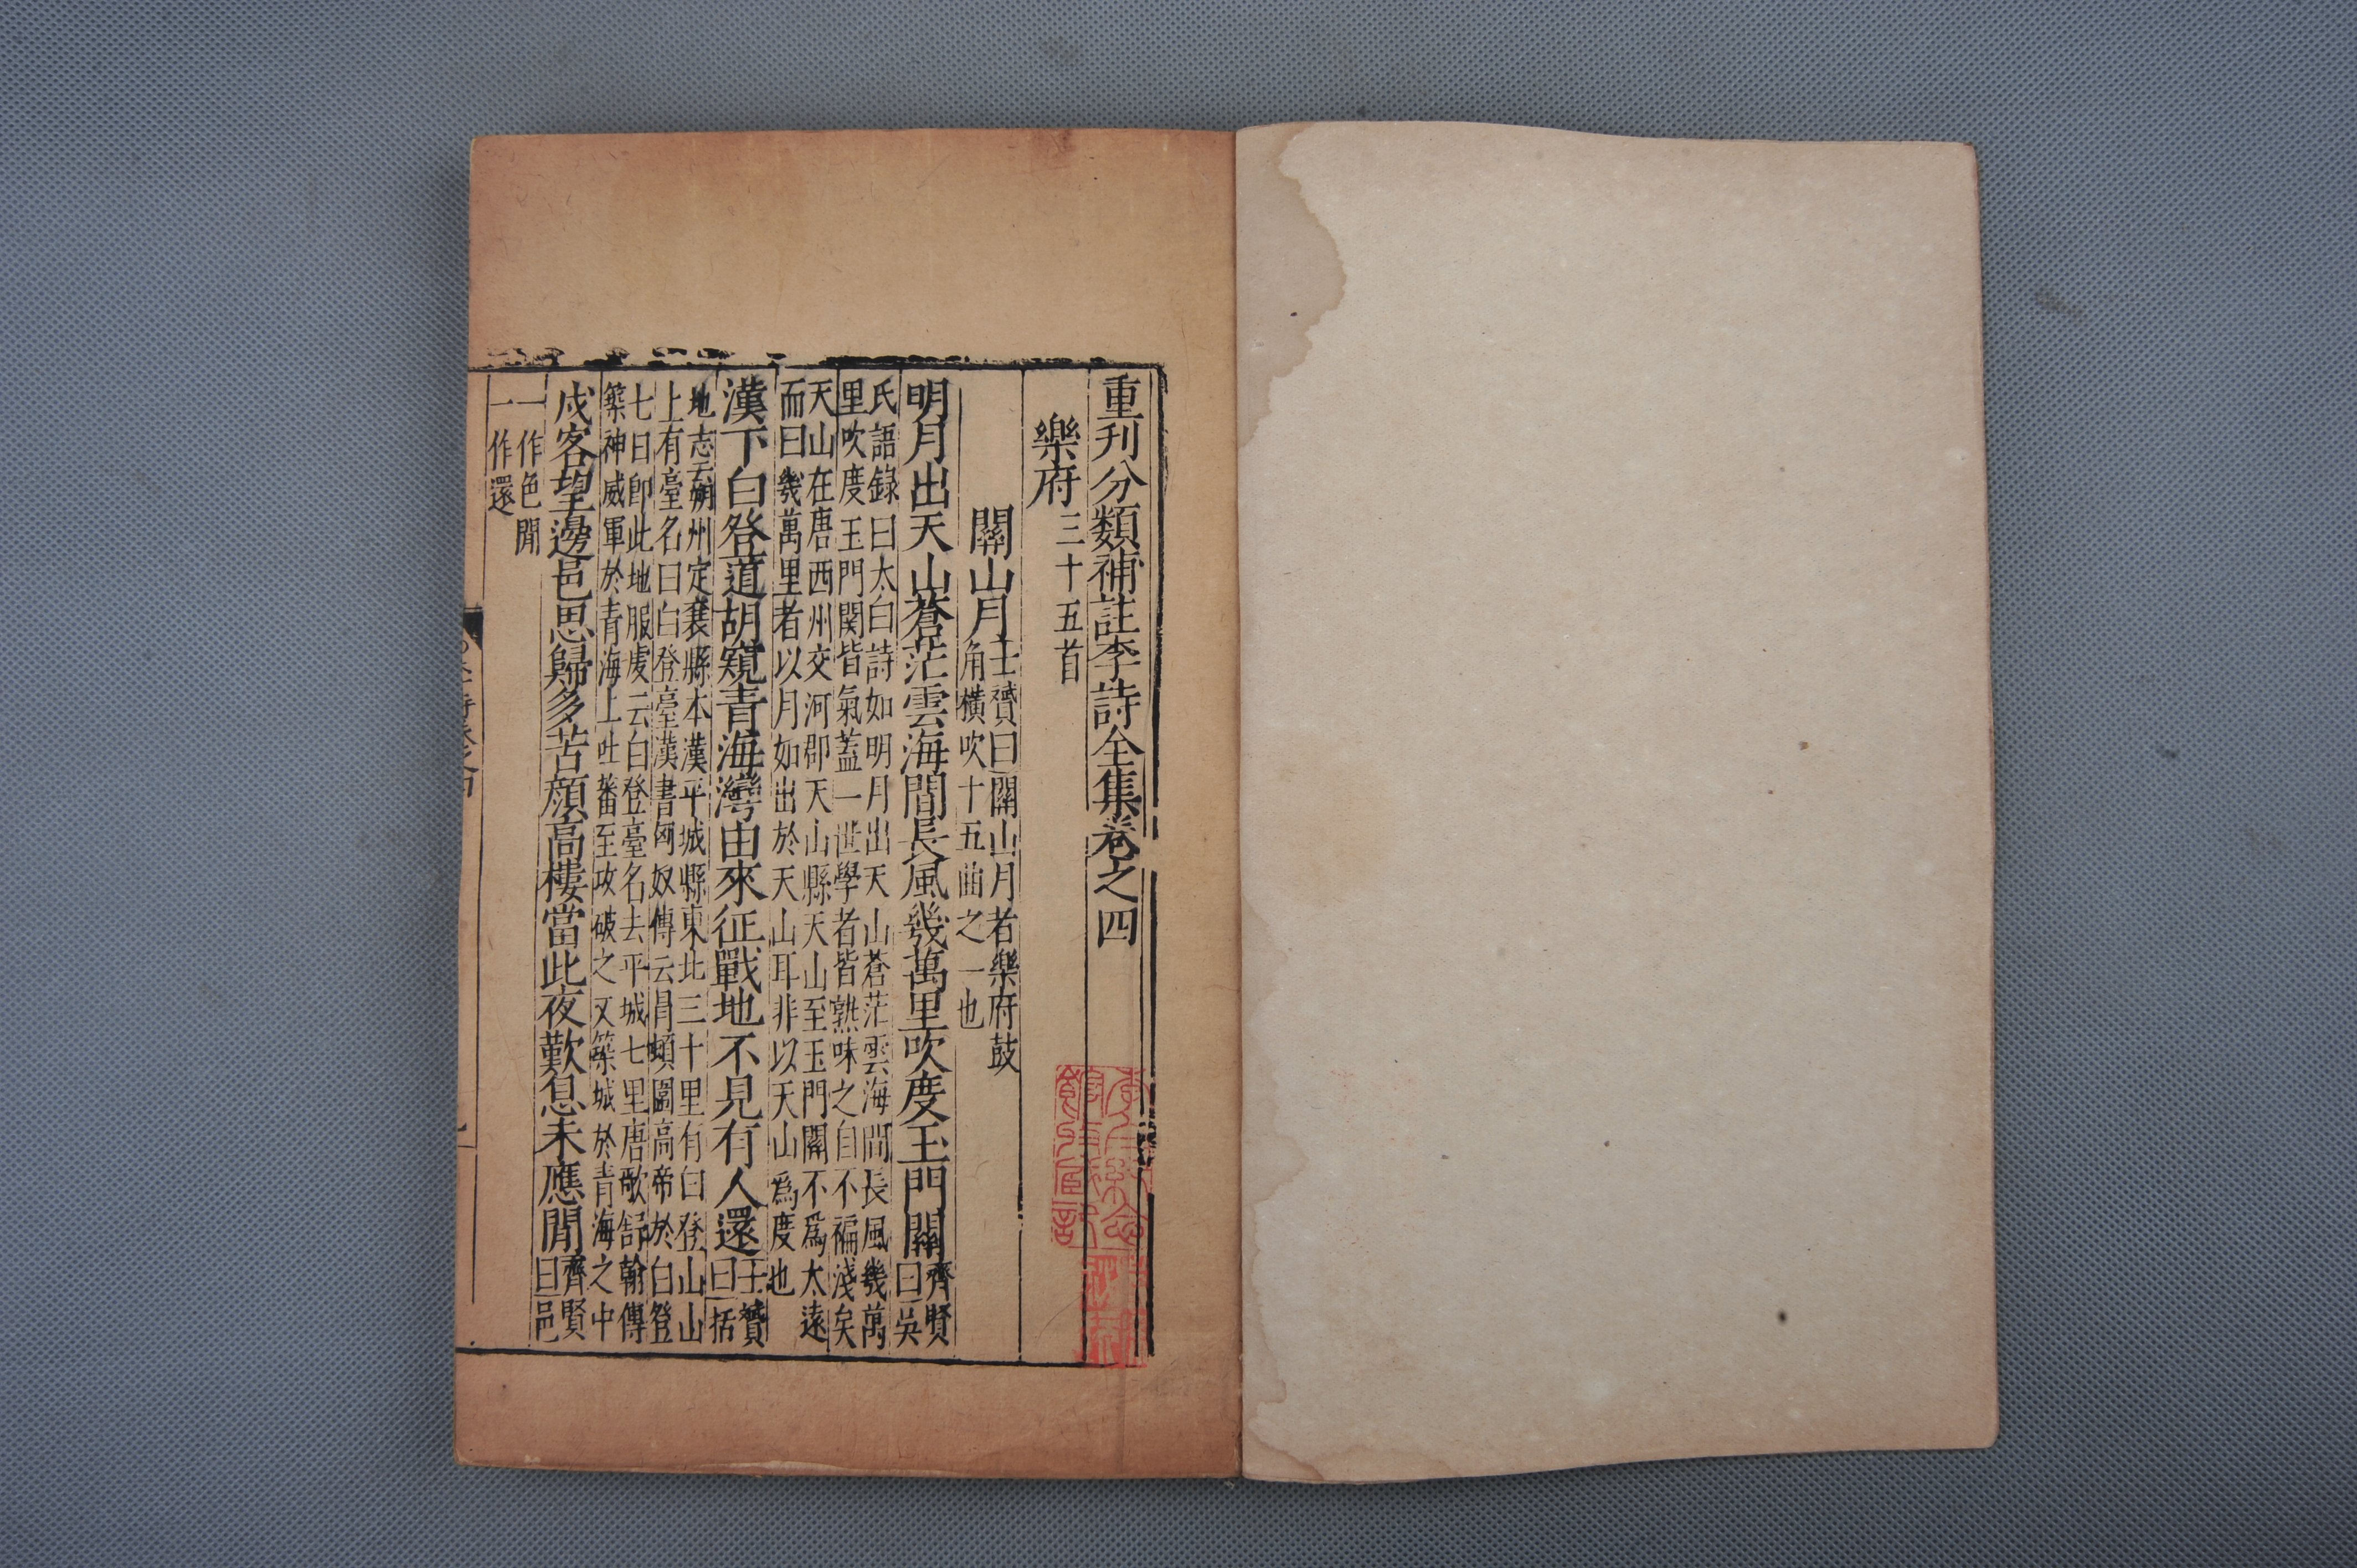 重刊分類補註李詩全集卷之四
樂府三十五首
關山月
士贇曰關山月者樂府鼓
角橫吹十五曲之一也
明月出天山蒼茫雲海間長風幾萬里吹度玉門關
齊賢
曰吳
氏語錄曰太白詩如明月出天山蒼茫雲海間長風幾萬
里吹度玉門関皆氣蓋一世學者皆熟味之自不褊淺矣
天山在唐西州交河郡天山縣天山至玉門關不爲太遠
而曰幾萬里者以月如出於天山耳非以天山爲度也
漢下白登道胡窺青海灣由來征戰地不見有人還
士贇
曰括
地志云朔州定襄縣本漢平城縣東北三十里有白登山山
上有臺名曰白登臺漢書匈奴傳云冐頓圍高帝於白登
七日卽此地服虔云白登臺名去平城七里唐歌舒翰傳
築神威軍於青海上吐蕃至攻破之又築城於青海之中
戍客望邊邑思歸多苦顏高樓當此夜歎息未應閒
齊賢
曰邑
一作色閒
一作還